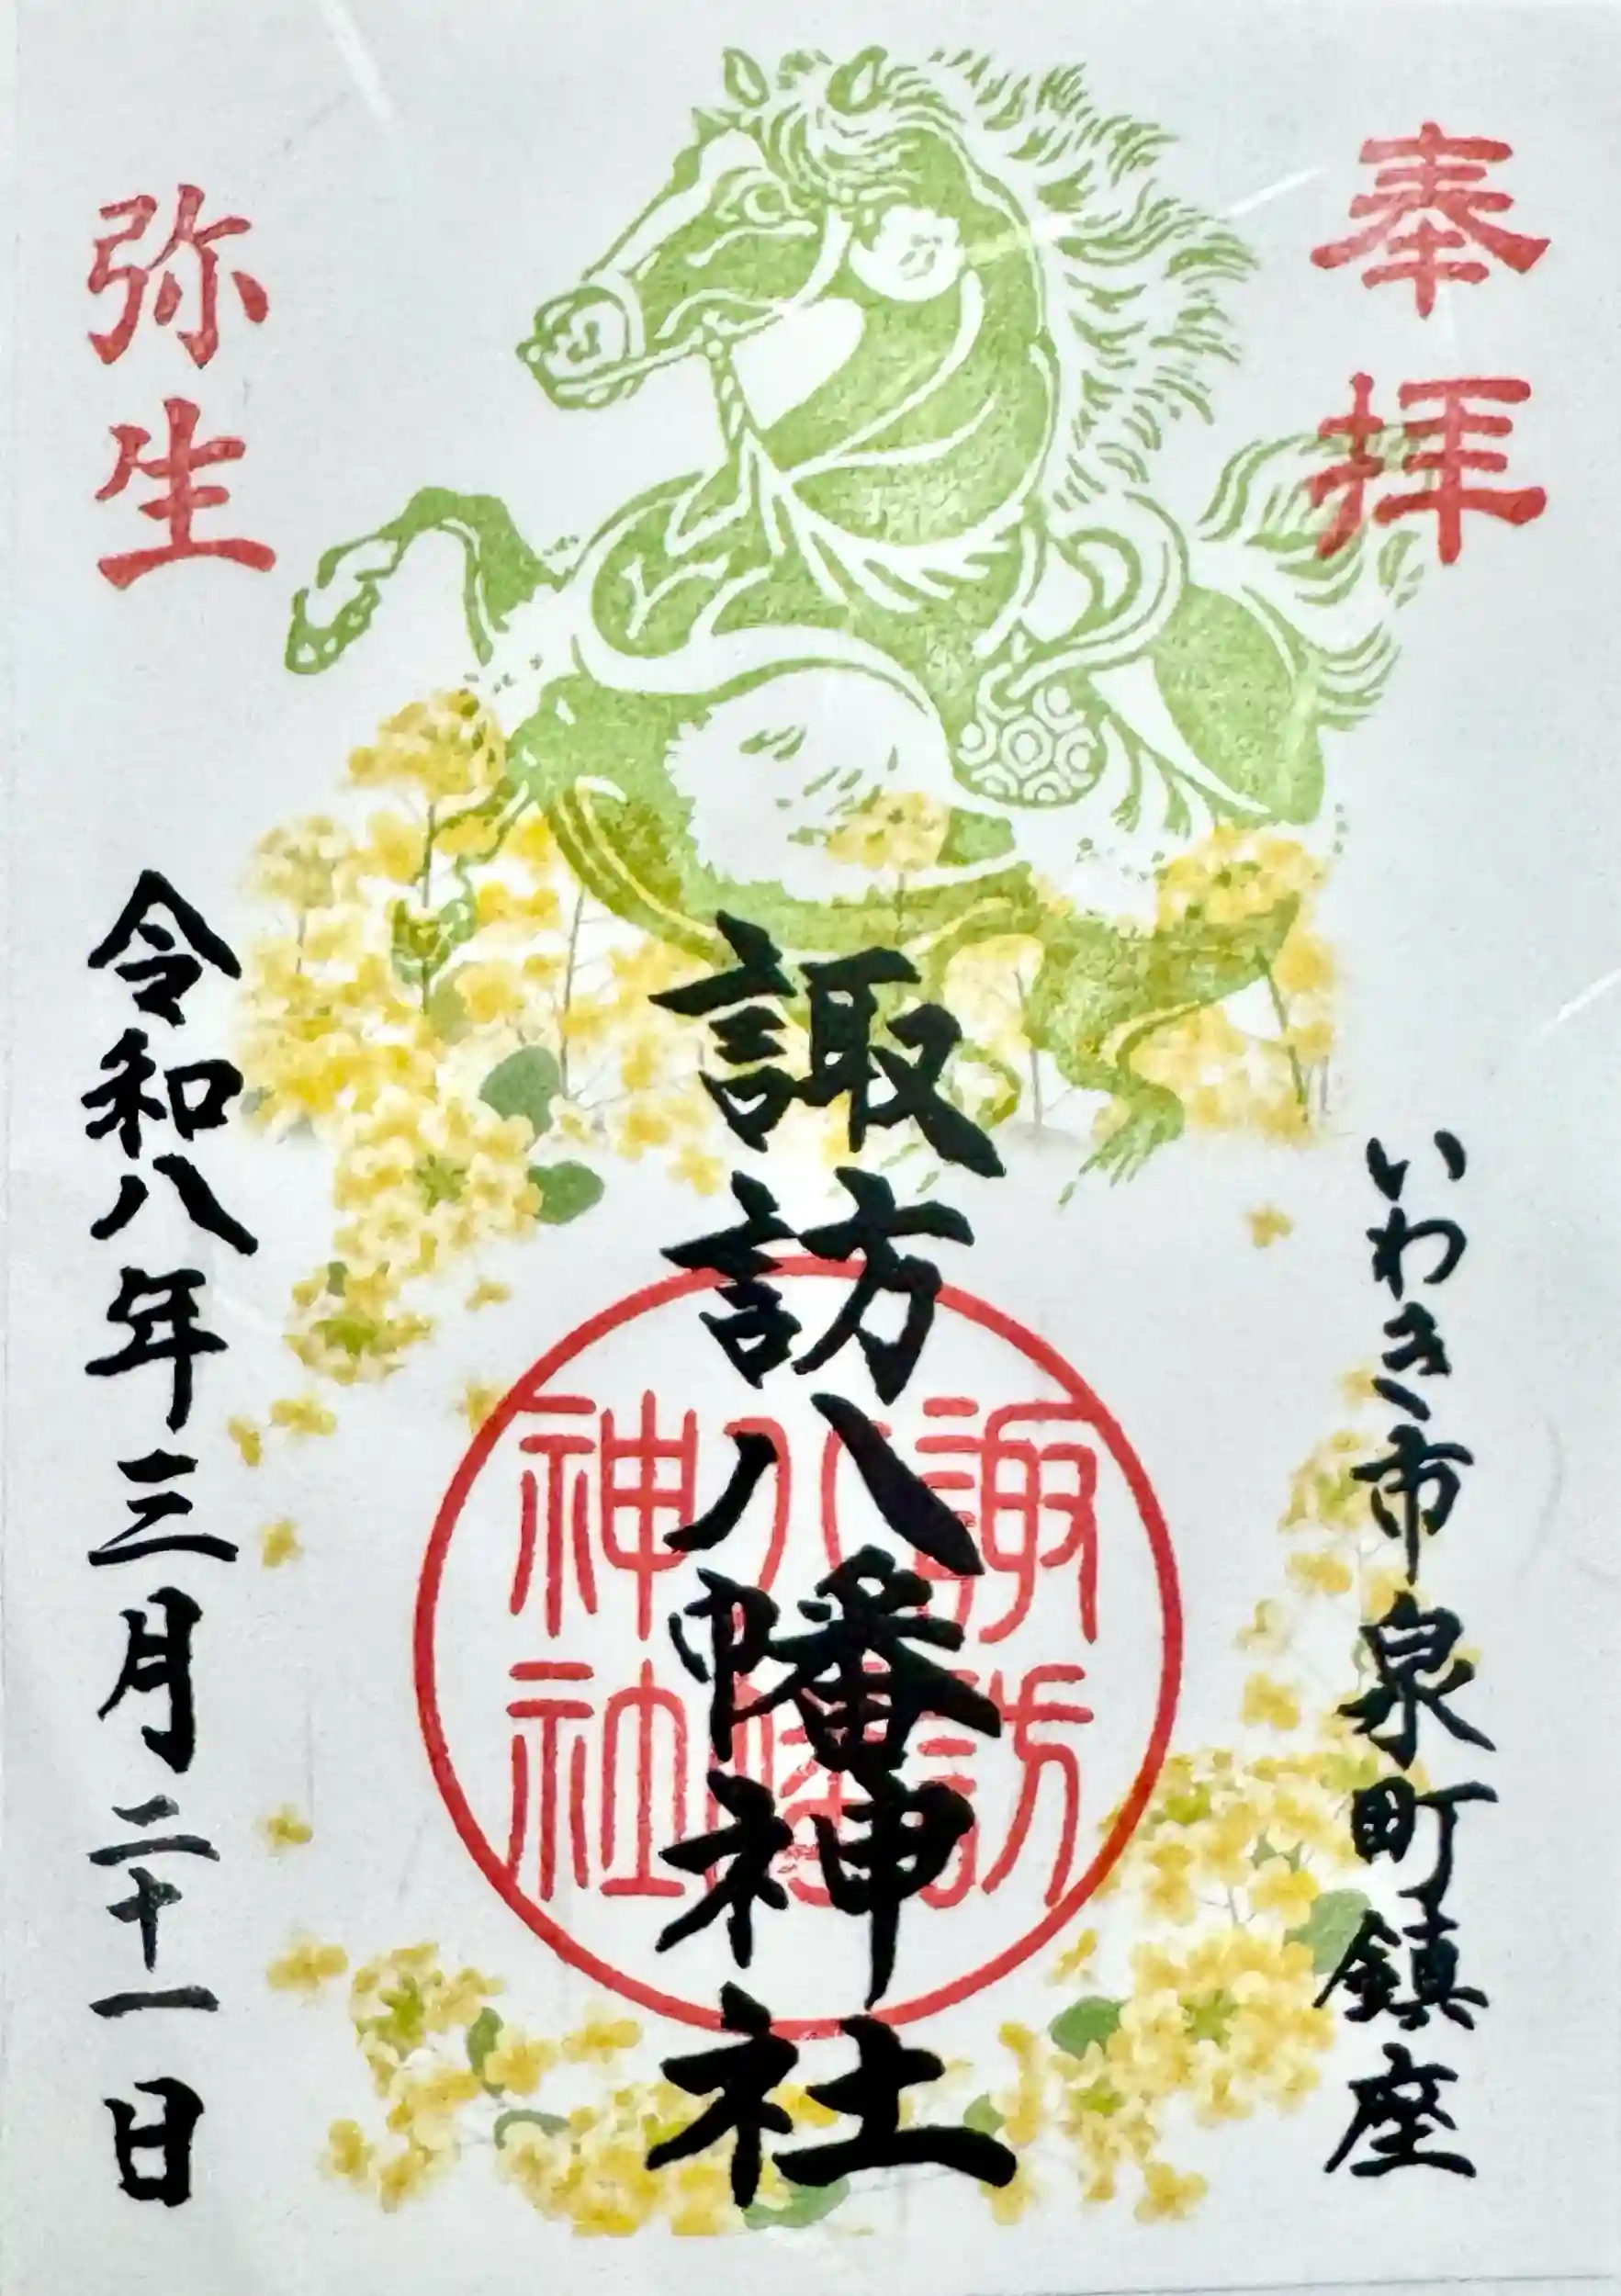 奉拝
いわき市泉町鎮座
諏訪八幡神社
諏訪
八幡
神社
弥生
令和八年三月二十一日